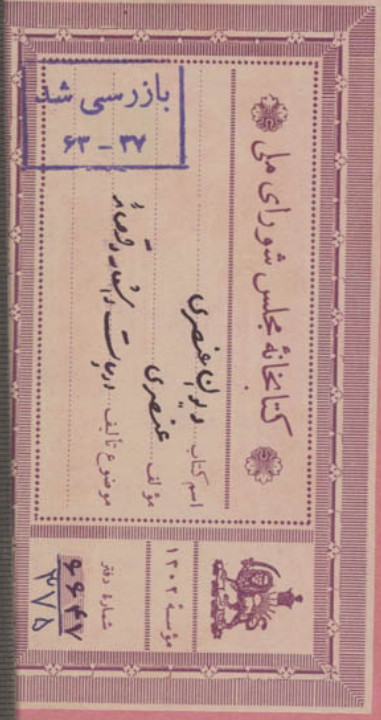 بازرسی شد
۳۷ - ۶۳
کتابخانهٔ مجلس شورای ملی
اسم کتاب دیوان عنصری
مؤلف عنصری
موضوع تألیف
مؤسسهٔ ۱۳۰۲
شمارهٔ دفتر
۳۷۵